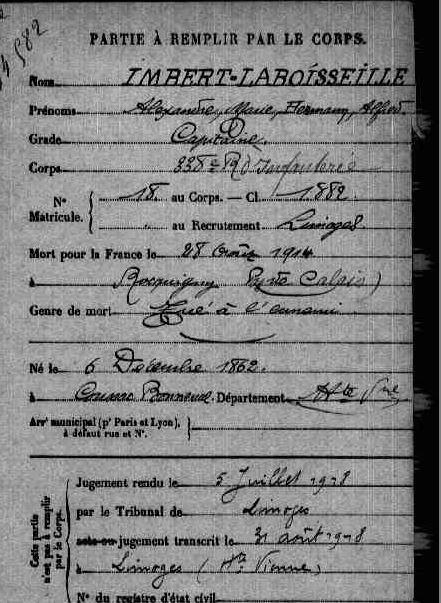 PARTIE À REMPLIR PAR LE CORPS.
Nom IMBERT-LABOISSEILLE
Prénoms Alexandre, Marie, Hermann, Alfred.
Grade Capitaine.
Corps 338e Rt d'Infanterie
N° Matricule. { 18. au Corps. — Cl. 1.882.
" au Recrutement Limoges
Mort pour la France le 28 août 1914
à Rocquigny Calais)
Genre de mort Tué à l'ennemi
Né le 6 Décembre 1862.
à Coussac Bonneval. Département Hte Vne
Arrt municipal (pr Paris et Lyon),
à défaut rue et N°.
Cette partie n'est pas à remplir par le Corps.
Jugement rendu le 5 Juillet 1918
par le Tribunal de Limoges
acte ou jugement transcrit le 31 août 1918
à Limoges (Hte Vienne)
N° du registre d'état civil